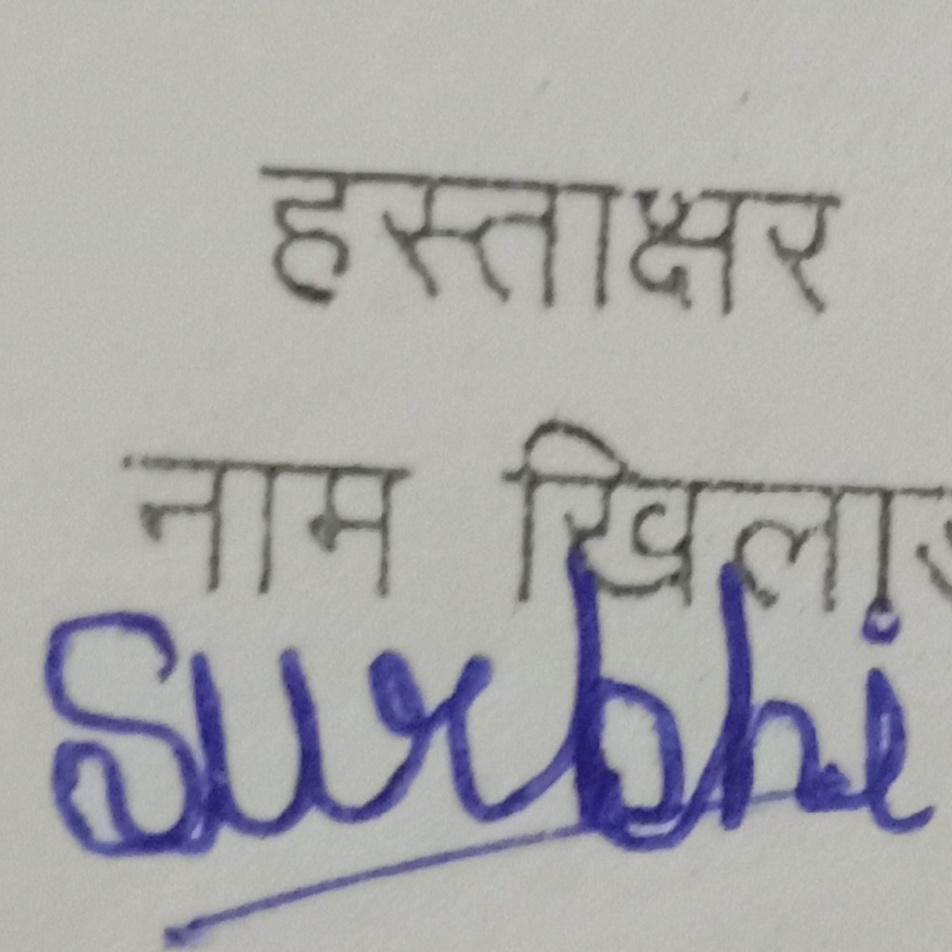 हस्ताक्षर
नाम
Surbhi